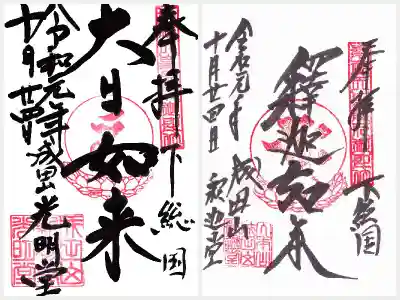 奉拝 下総国
大日如来
令和元年 成田山 光明堂
十月廿四日
奉拝 下総国
釋迦如来
令和元年 成田山 釈迦堂
十月廿四日